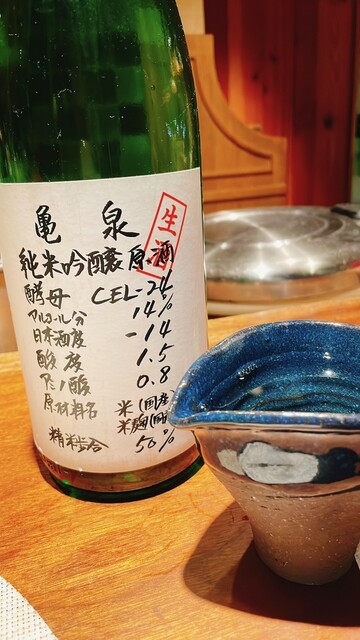 亀泉
生酒
純米吟醸原酒
酵母 CEL-24
アルコール分 14%
日本酒度 -14
酸度 1.5
アミノ酸 0.8
原材料名 米(国産
米麹(国
精米歩合 50%